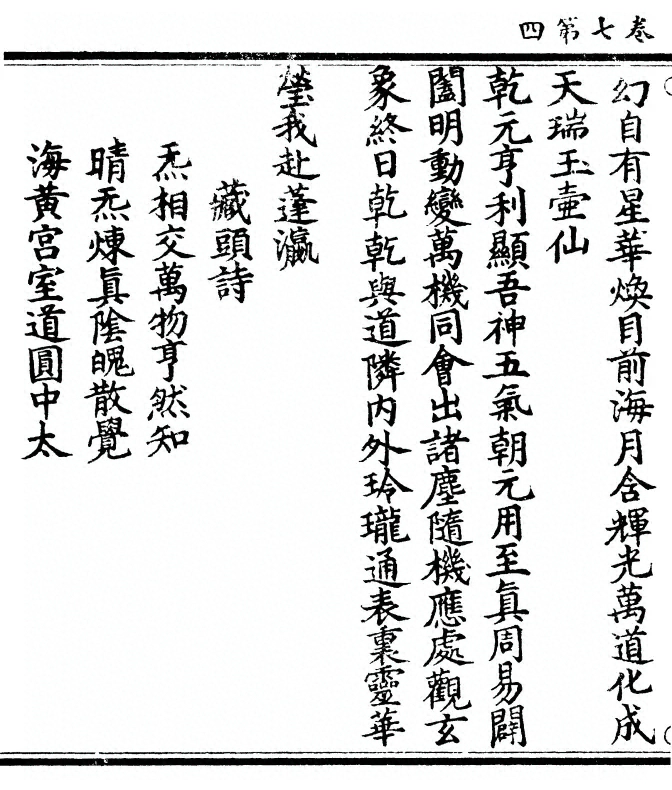 卷七第四
幻自有星華煥目前海月含輝光萬道化成
天瑞玉壷仙
乾元亨利顯吾神五氣朝元用至真周易闢
闔明動變萬機同會出諸塵隨機應處觀玄
象終日乾乾與道隣内外玲瓏通表裏靈華
瑩我赴蓬瀛
藏頭詩
炁相交萬物亨然知
晴炁煉真陰魄散覺
海黄宫室道圓中太